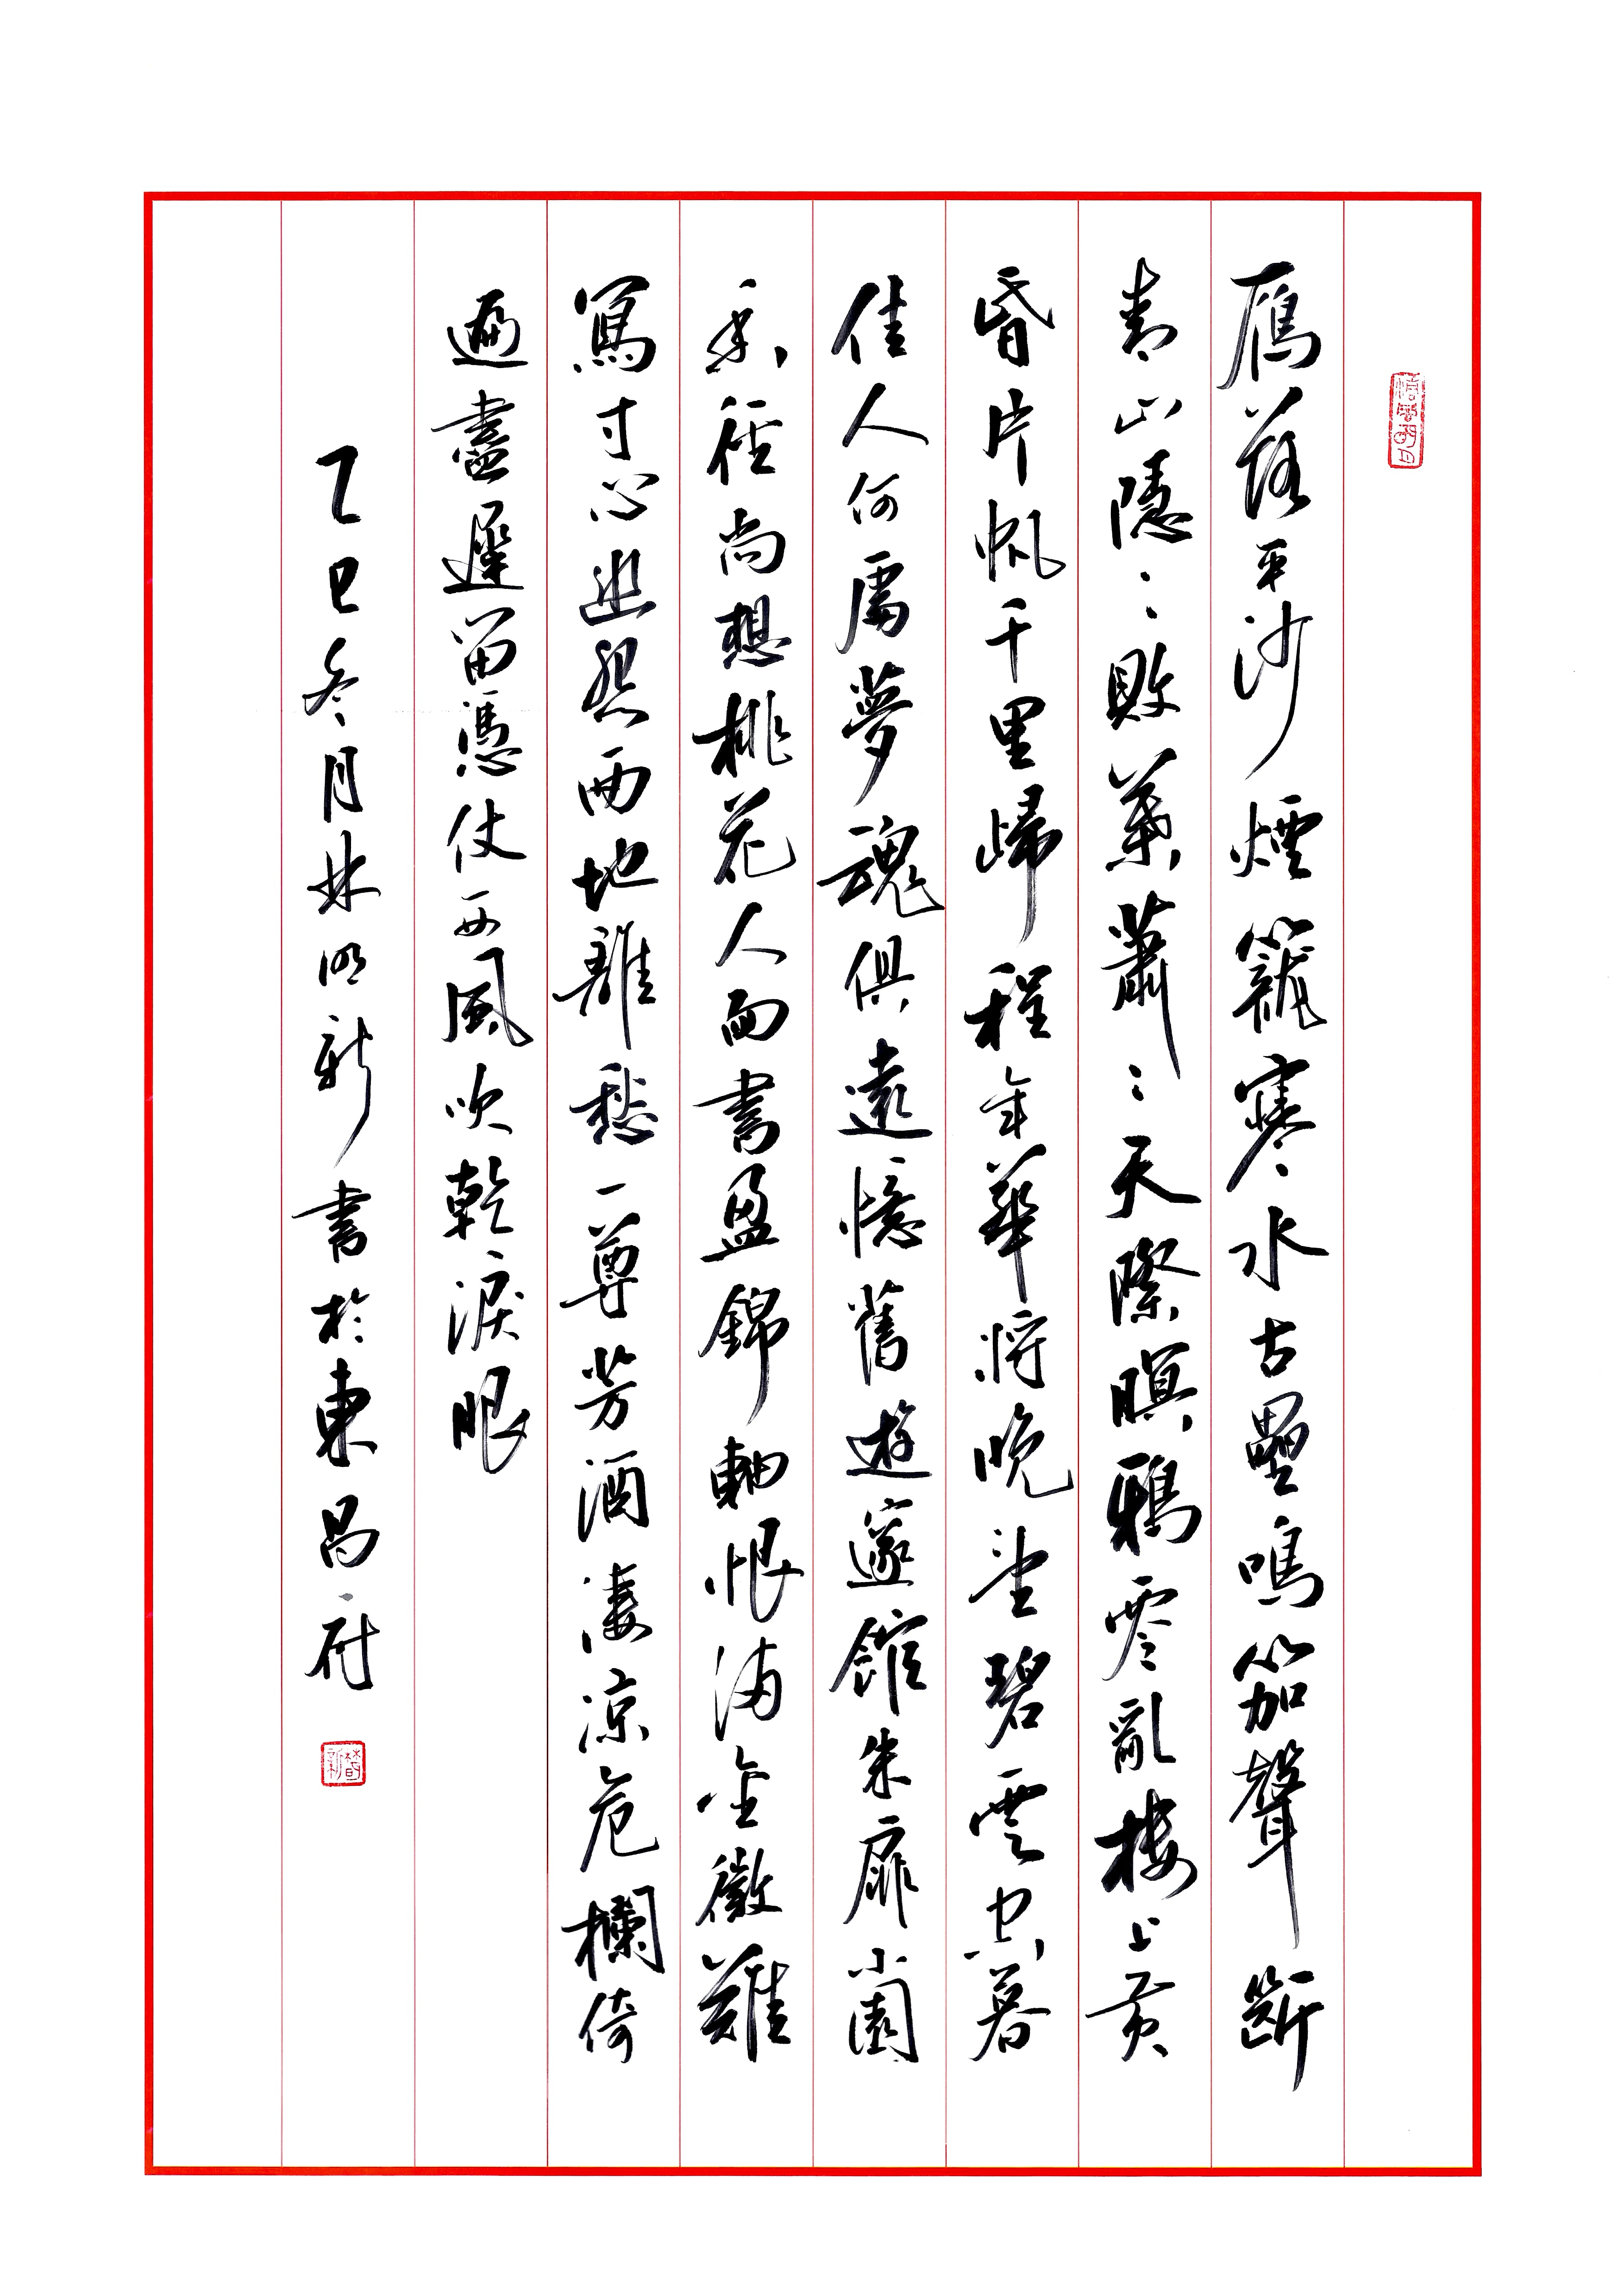 鴈落平沙煙籠寒水古壘鳴笳聲斷
青山隱々敗葉蕭々天際暝鴉零亂樓上黃
昏片帆千里歸程年華將晚望碧雲空暮
佳人何處夢魂俱遠憶舊遊邃館朱扉小園
香徑尚想桃花人面書盈錦軸恨滿金徽難
寫寸心幽怨兩地離愁一尊芳酒淒涼危欄倚
遍盡遲留憑仗西風吹乾淚眼
乙巳冬月林明新書於東昌府